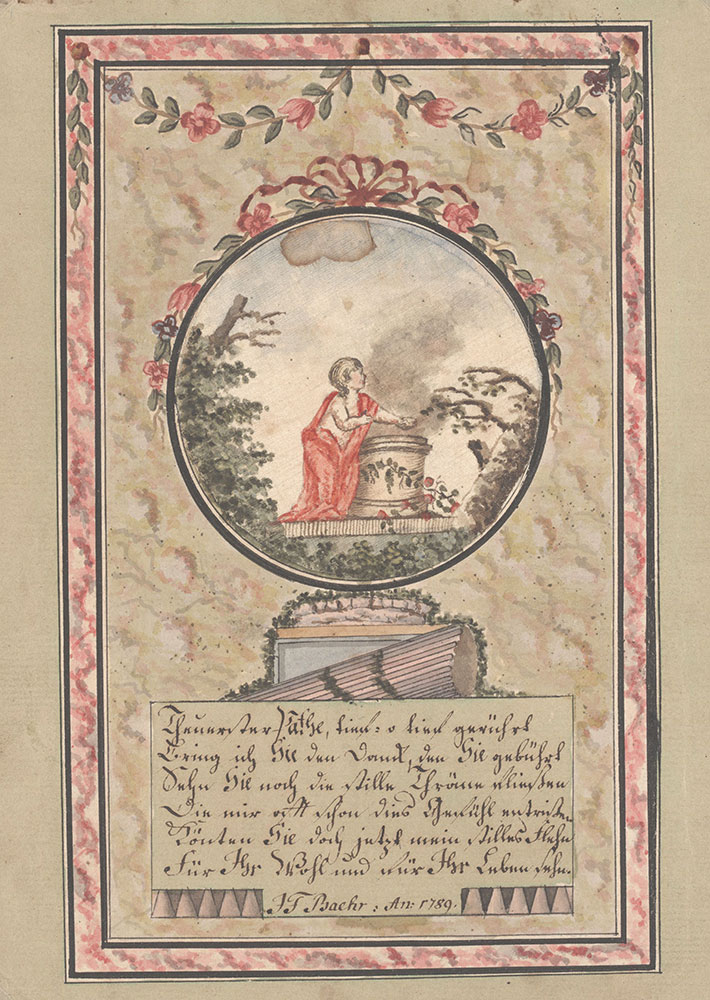 Theuerster Pathe, tief= o tief gerührt
Bring ich Sie den Danck, den Sie gebührt
Sehn Sie noch die stille Thräne fließen
Die mir offt schon dies Gefühl entrißen
Könten Sie doch jetzt mein stilles Flehn
Für Ihr Wohl und für Ihr Leben sehn.
J T Baehr : An: 1789.